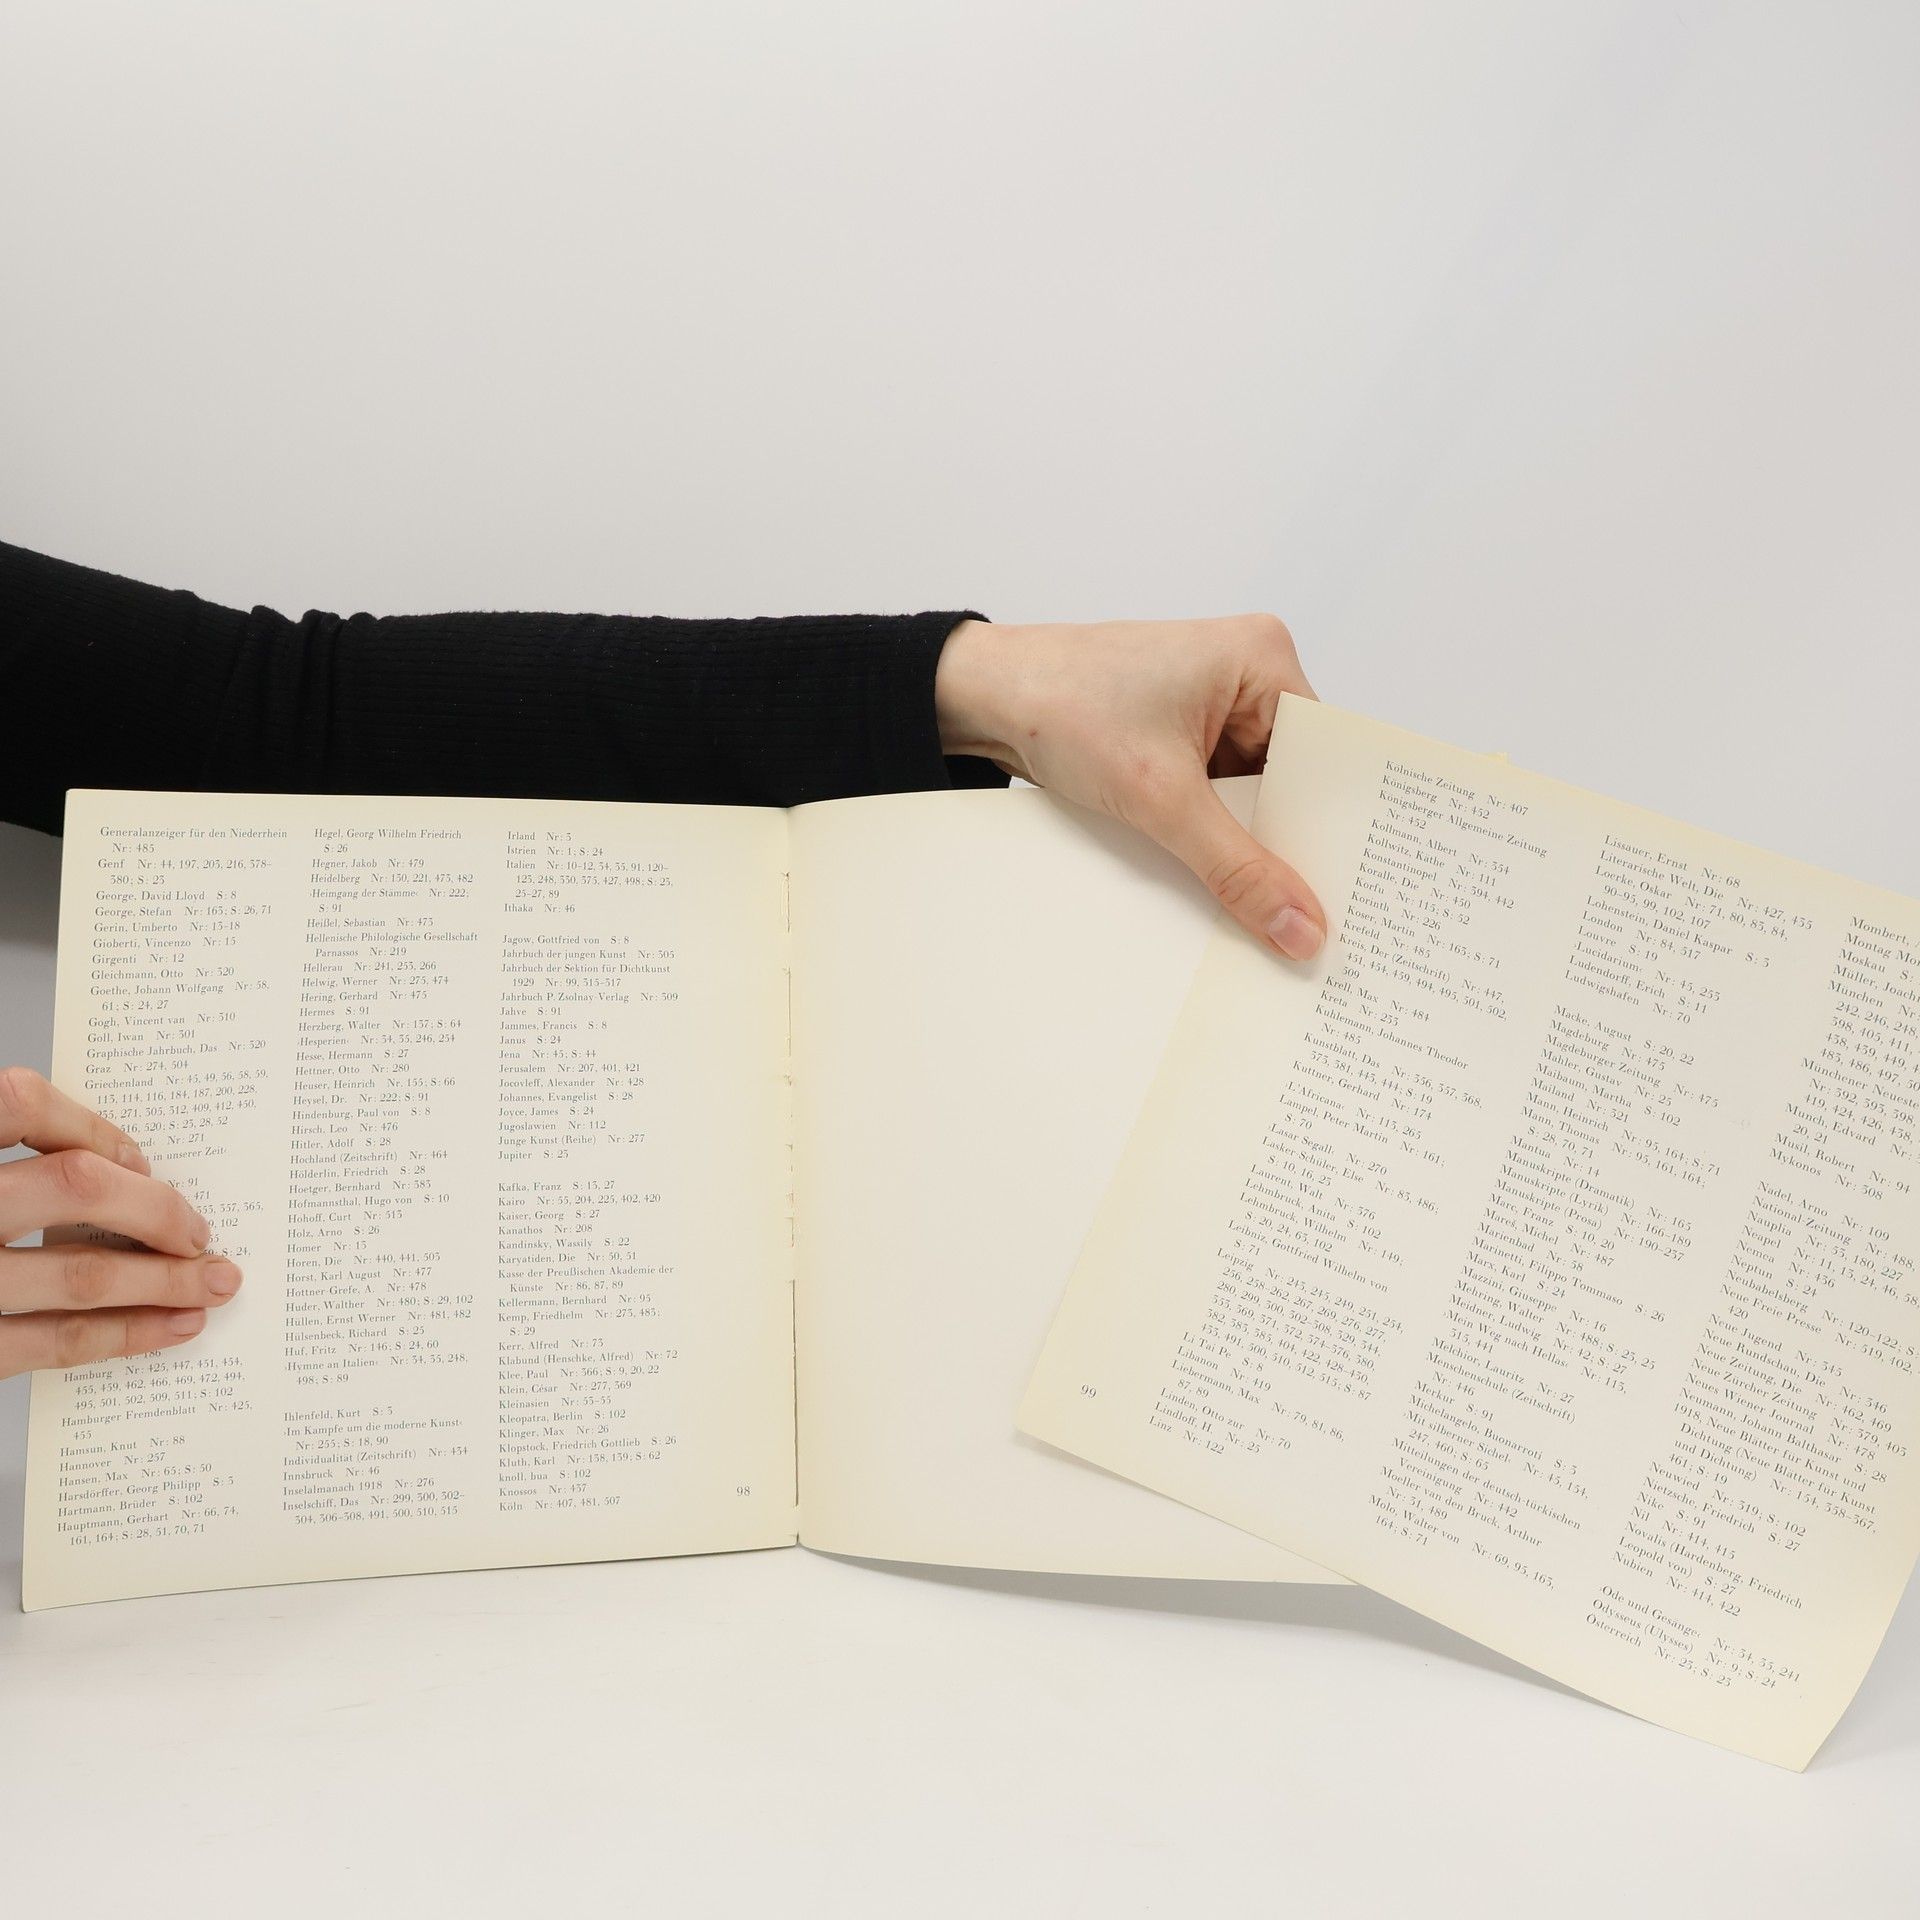 Generalanzeiger für den Niederrhein
Nr: 485
Genf Nr: 44, 197, 203, 216, 378–
380; S: 23
George, David Lloyd S: 8
George, Stefan Nr: 163; S: 26, 71
Gerin, Umberto Nr: 13–18
Gioberti, Vincenzo Nr: 15
Girgenti Nr: 12
Gleichmann, Otto Nr: 320
Goethe, Johann Wolfgang Nr: 58,
61; S: 24, 27
Gogh, Vincent van Nr: 310
Goll, Iwan Nr: 301
Graphische Jahrbuch, Das Nr: 320
Graz Nr: 274, 504
Griechenland Nr: 45, 49, 56, 58, 59,
113, 114, 116, 184, 187, 200, 228,
255, 271, 305, 312, 409, 412, 450,
516, 520; S: 23, 28, 52
Nr: 271
in unserer Zeit‹
Nr: 91
471
355, 357, 365,
102
S: 24,
Nr: 186
Hamburg Nr: 425, 447, 451, 454,
455, 459, 462, 466, 469, 472, 494,
495, 501, 502, 509, 511; S: 102
Hamburger Fremdenblatt Nr: 425,
455
Hamsun, Knut Nr: 88
Hannover Nr: 257
Hansen, Max Nr: 65; S: 50
Harsdörffer, Georg Philipp S: 3
Hartmann, Brüder S: 102
Hauptmann, Gerhart Nr: 66, 74,
161, 164; S: 28, 51, 70, 71
Hegel, Georg Wilhelm Friedrich
S: 26
Hegner, Jakob Nr: 479
Heidelberg Nr: 150, 221, 473, 482
›Heimgang der Stämme‹ Nr: 222;
S: 91
Heißel, Sebastian Nr: 473
Hellenische Philologische Gesellschaft
Parnassos Nr: 219
Hellerau Nr: 241, 253, 266
Helwig, Werner Nr: 273, 474
Hering, Gerhard Nr: 475
Hermes S: 91
Herzberg, Walter Nr: 137; S: 64
›Hesperien‹ Nr: 34, 35, 246, 254
Hesse, Hermann S: 27
Hettner, Otto Nr: 280
Heuser, Heinrich Nr. 155; S: 66
Heysel, Dr. Nr: 222; S: 91
Hindenburg, Paul von S: 8
Hirsch, Leo Nr: 476
Hitler, Adolf S: 28
Hochland (Zeitschrift) Nr: 464
Hölderlin, Friedrich S: 28
Hoetger, Bernhard Nr: 383
Hofmannsthal, Hugo von S: 10
Hohoff, Curt Nr: 513
Holz, Arno S: 26
Homer Nr: 13
Horen, Die Nr: 440, 441, 503
Horst, Karl August Nr: 477
Hottner-Grefe, A. Nr: 478
Huder, Walther Nr: 480; S: 29, 102
Hüllen, Ernst Werner Nr: 481, 482
Hülsenbeck, Richard S: 25
Huf, Fritz Nr: 146; S: 24, 60
›Hymne an Italien‹ Nr: 34, 35, 248,
498; S: 89
Ihlenfeld, Kurt S: 3
›Im Kampfe um die moderne Kunst‹
Nr: 255; S: 18, 90
Individualität (Zeitschrift) Nr: 434
Innsbruck Nr: 46
Inselalmanach 1918 Nr: 276
Inselschiff, Das Nr: 299, 300, 302–
304, 306–308, 491, 500, 510, 515
Irland Nr: 3
Istrien Nr: 1, S: 24
Italien Nr: 10–12, 34, 35, 91, 120–
123, 248, 330, 375, 427, 498; S: 23,
25–27, 89
Ithaka Nr: 46
Jagow, Gottfried von S: 8
Jahrbuch der jungen Kunst Nr: 305
Jahrbuch der Sektion für Dichtkunst
1929 Nr: 99, 315–317
Jahrbuch P. Zsolnay-Verlag Nr: 309
Jahve S: 91
Jammes, Francis S: 8
Janus S: 24
Jena Nr: 45; S: 44
Jerusalem Nr: 207, 401, 421
Jocovleff, Alexander Nr: 428
Johannes, Evangelist S: 28
Joyce, James S: 24
Jugoslawien Nr: 112
Junge Kunst (Reihe) Nr: 277
Jupiter S: 23
Kafka, Franz S: 13, 27
Kairo Nr: 55, 204, 225, 402, 420
Kaiser, Georg S: 27
Kanathos Nr: 208
Kandinsky, Wassily S: 22
Karyatiden, Die Nr: 50, 51
Kasse der Preußischen Akademie der
Künste Nr: 86, 87, 89
Kellermann, Bernhard Nr: 95
Kemp, Friedhelm Nr: 273, 483;
S: 29
Kerr, Alfred Nr: 73
Klabund (Henschke, Alfred) Nr: 72
Klee, Paul Nr: 366; S: 9, 20, 22
Klein, César Nr: 277, 369
Kleinasien Nr: 53–55
Kleopatra, Berlin S: 102
Klinger, Max Nr: 26
Klopstock, Friedrich Gottlieb S: 26
Kluth, Karl Nr: 138, 139; S: 62
knoll, bua S: 102
Knossos Nr: 437
Köln Nr: 407, 481, 507
98
Kölnische Zeitung Nr: 407
Königsberg Nr: 452
Königsberger Allgemeine Zeitung
Nr: 452
Kollmann, Albert Nr: 354
Kollwitz, Käthe Nr: 111
Konstantinopel Nr: 394, 442
Koralle, Die Nr: 450
Korfu Nr: 115; S: 52
Korinth Nr: 226
Koser, Martin Nr: 163; S: 71
Krefeld Nr: 485
Kreis, Der (Zeitschrift) Nr: 447,
451, 454, 459, 494, 495, 501, 502,
509
Krell, Max Nr: 484
Kreta Nr: 233
Kuhlemann, Johannes Theodor
Nr: 485
Kunstblatt, Das Nr: 356, 357, 368,
373, 381, 443, 444; S: 19
Kuttner, Gerhard Nr: 174
›L'Africana‹ Nr: 113, 265
Lampel, Peter Martin Nr: 161;
S: 70
›Lasar Segall‹ Nr: 270
Lasker-Schüler, Else Nr: 83, 486;
S: 10, 16, 23
Laurent, Walt Nr: 376
Lehmbruck, Anita S: 102
Lehmbruck, Wilhelm Nr: 149;
S: 20, 24, 63, 102
Leibniz, Gottfried Wilhelm von
S: 71
Leipzig Nr: 243, 245, 249, 251, 254,
256, 258–262, 267, 269, 276, 277,
280, 299, 300, 302–308, 329, 344,
355, 369, 371, 372, 374–376, 380,
382, 383, 385, 404, 422, 428–430,
433, 491, 500, 510, 512, 515; S: 87
Li Tai Pe S: 8
Libanon Nr: 419
Liebermann, Max Nr: 79, 81, 86,
87, 89
Linden, Otto zur Nr: 70
Lindloff, H. Nr: 25
Linz Nr: 122
99
Lissauer, Ernst Nr: 68
Literarische Welt, Die Nr: 427, 435
Loerke, Oskar Nr: 71, 80, 83, 84,
90–95, 99, 102, 107
Lohenstein, Daniel Kaspar S: 3
London Nr: 84, 517
Louvre S: 19
›Lucidarium‹ Nr: 45, 253
Ludendorff, Erich S: 11
Ludwigshafen Nr: 70
Macke, August S: 20, 22
Magdeburg Nr: 475
Magdeburger Zeitung Nr: 475
Mahler, Gustav Nr: 23
Maibaum, Martha S: 102
Mailand Nr: 321
Mann, Heinrich Nr: 95, 164; S: 71
Mann, Thomas Nr: 95, 161, 164;
S: 28, 70, 71
Mantua Nr: 14
Manuskripte (Dramatik) Nr: 165
Manuskripte (Lyrik) Nr: 166–189
Manuskripte (Prosa) Nr: 190–237
Marc, Franz S: 10, 20
Mareš, Michel Nr: 487
Marienbad Nr: 58
Marinetti, Filippo Tommaso S: 26
Marx, Karl S: 24
Mazzini, Giuseppe Nr: 16
Mehring, Walter Nr: 488; S: 23, 25
Meidner, Ludwig Nr: 42; S: 27
›Mein Weg nach Hellas‹ Nr: 113,
313, 441
Melchior, Lauritz Nr: 27
Menschenschule (Zeitschrift)
Nr: 446
Merkur S: 91
Michelangelo, Buonarroti S: 3
›Mit silberner Sichel‹ Nr: 45, 134,
247, 460; S: 65
Mitteilungen der deutsch-türkischen
Vereinigung Nr: 442
Moeller van den Bruck, Arthur
Nr: 31, 489
Molo, Walter von Nr: 69, 95, 163,
164; S: 71
Mombert,
Montag Mor
Moskau S:
Müller, Joachi
München Nr:
242, 246, 248,
398, 403, 411,
438, 439, 449,
483, 486, 497, 50
Münchener Neueste
Nr: 392, 393, 398,
419, 424, 426, 438,
Munch, Edvard Nr:
20, 21
Musil, Robert Nr: 94
Mykonos Nr: 308
Nadel, Arno Nr: 109
National-Zeitung Nr: 488,
Nauplia Nr: 53, 180, 227
Neapel Nr: 11, 13, 24, 46, 58,
Nemea Nr: 436
Neptun S: 24
Neubabelsberg Nr: 120–122; S:
Neue Freie Presse Nr: 519, 402,
420
Neue Jugend Nr: 345
Neue Rundschau, Die Nr: 346
Neue Zeitung, Die Nr: 462, 469
Neue Zürcher Zeitung Nr: 379, 403
Neues Wiener Journal Nr: 478
Neumann, Johann Balthasar S: 28
1918, Neue Blätter für Kunst und
Dichtung (Neue Blätter für Kunst
und Dichtung) Nr: 154, 358–367,
461; S: 19
Neuwied Nr: 319; S: 102
Nietzsche, Friedrich S: 27
Nike S: 91
Nil Nr: 414, 415
Novalis (Hardenberg, Friedrich
Leopold von) S: 27
Nubien Nr: 414, 422
›Ode und Gesänge‹ Nr: 34, 35, 241
Odysseus (Ulysses) Nr: 9; S: 24
Österreich Nr: 23; S: 23